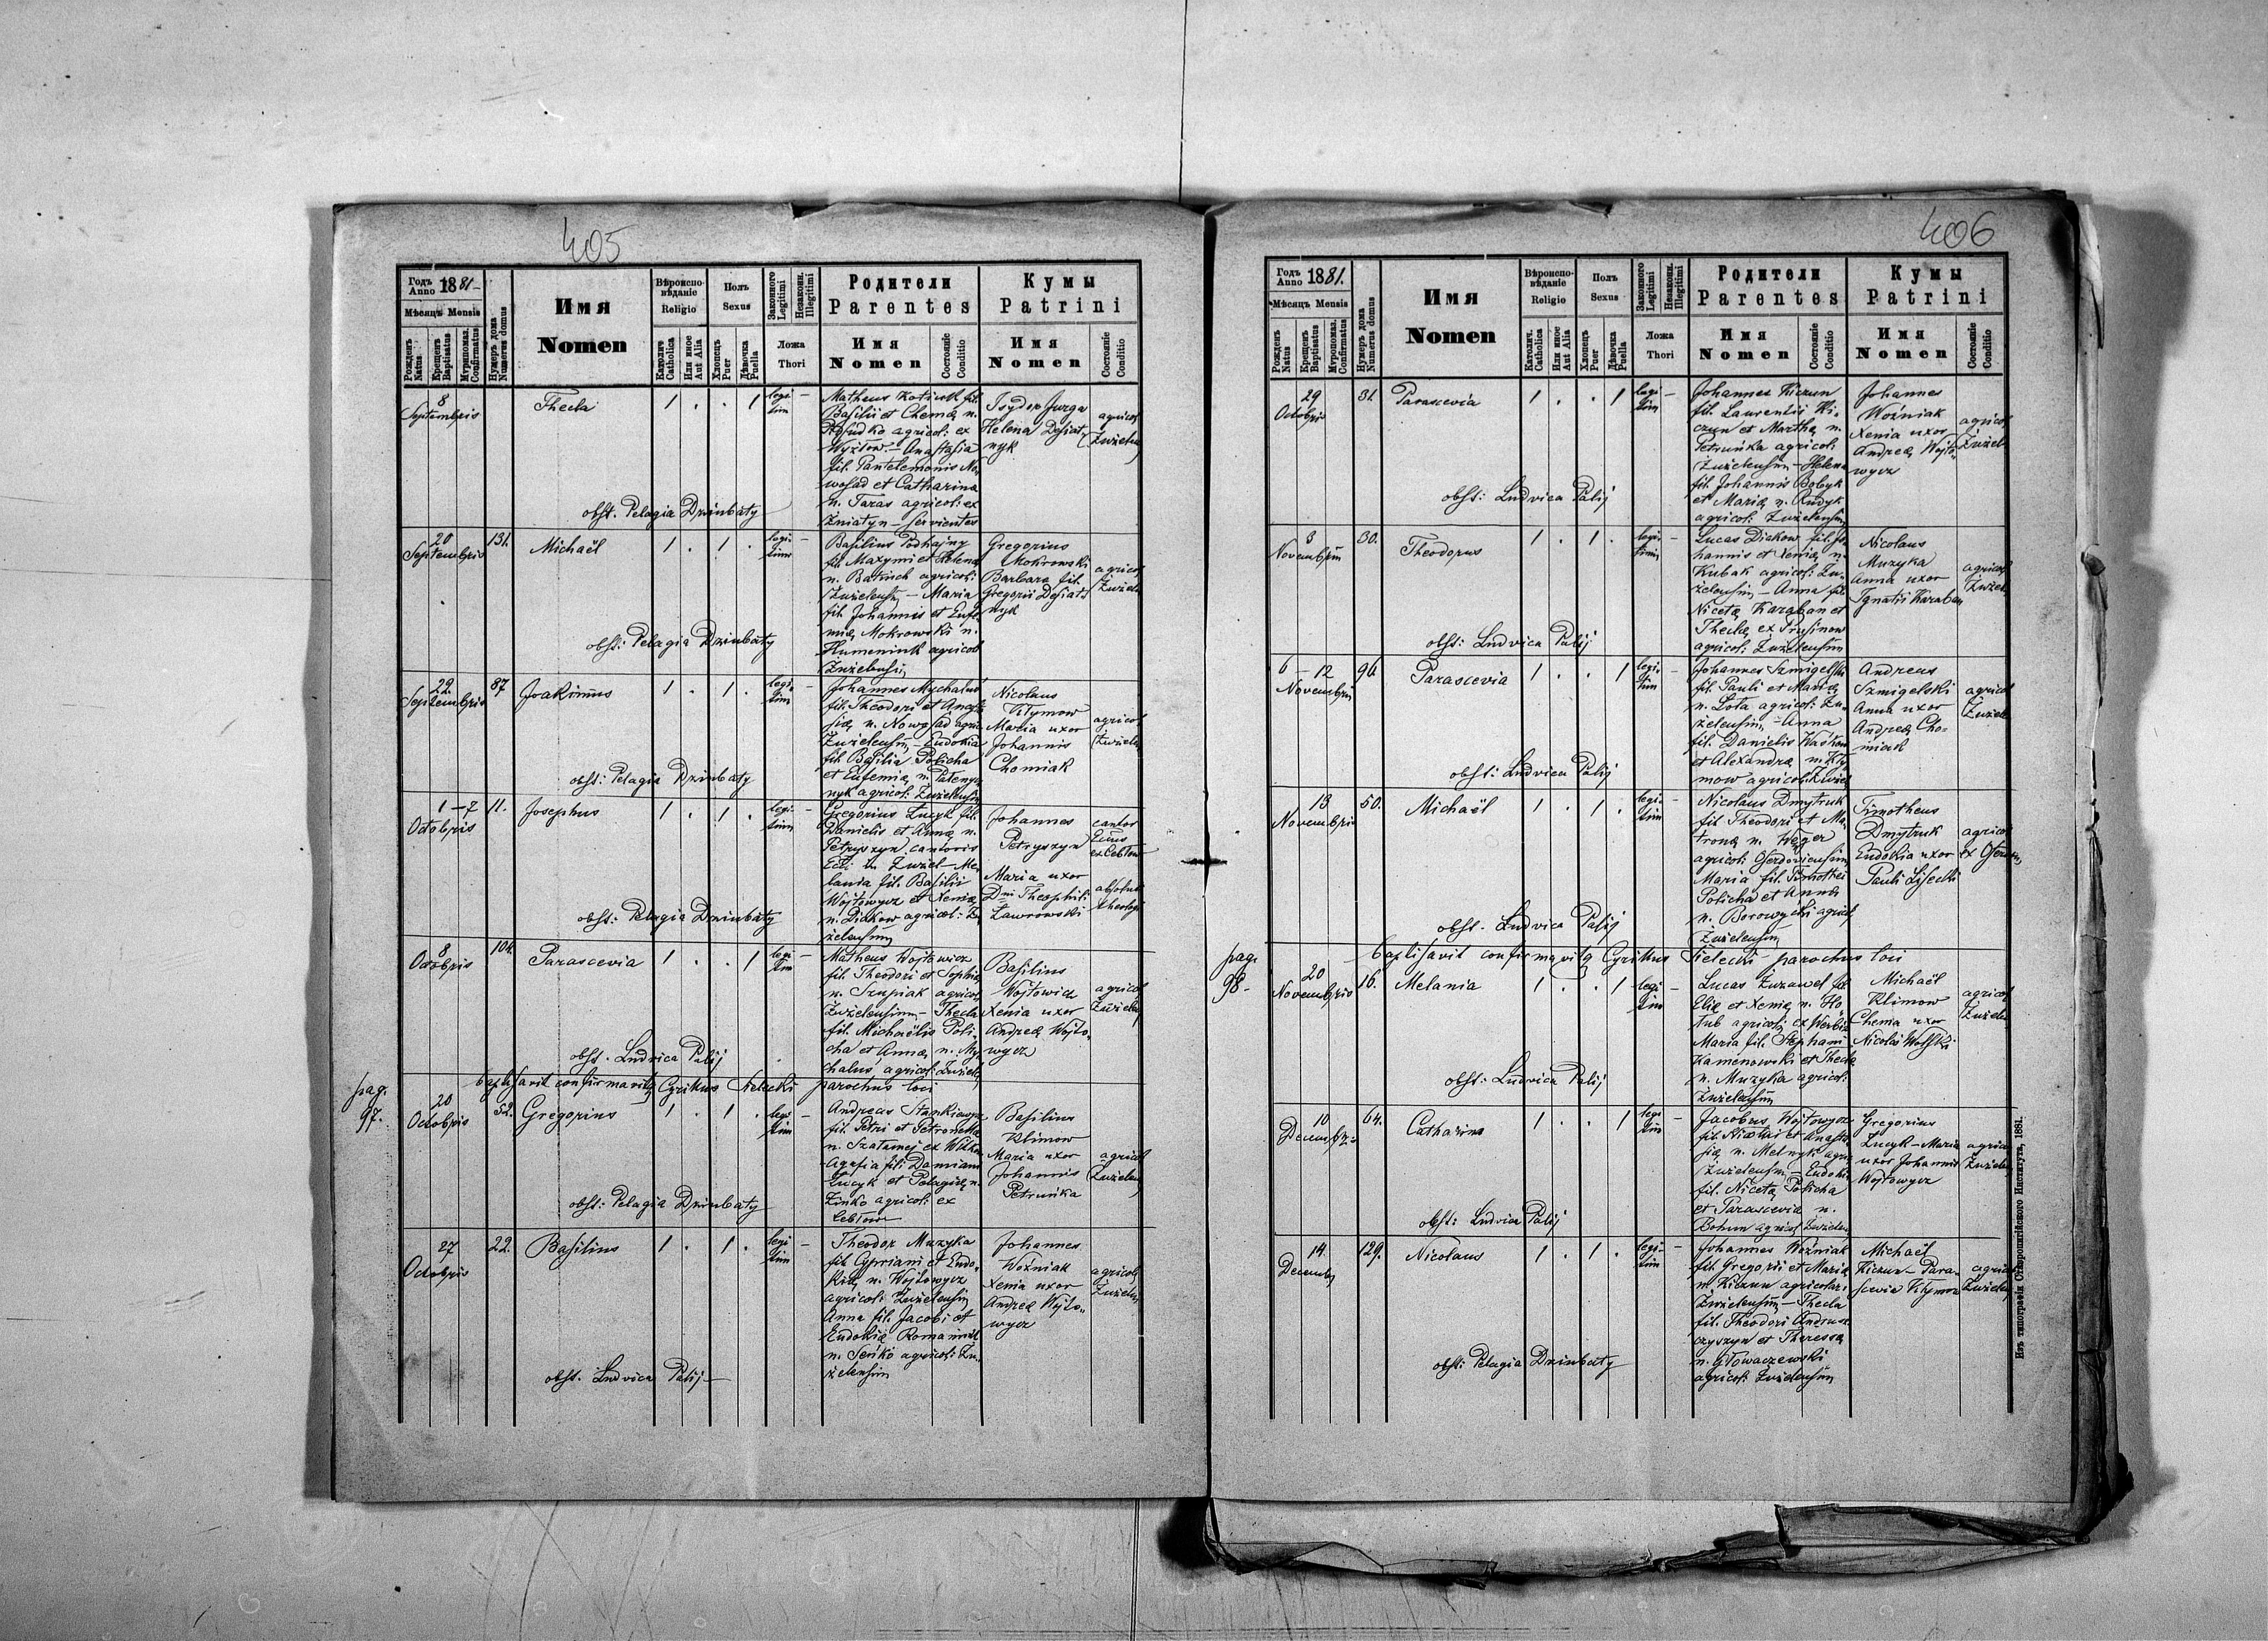 405
Годъ Anno 1881
Мѣсяцъ Mensis
Рожденъ Natus
Крещенъ Baptisatus
Муропомаз. Confirmatus
Нумеръ дома Numerus domus
Имя Nomen
Вѣроиспо-
вѣданіе
Religio
Католич Catholica
Или иное Aut Alia
Полъ
Sexus
Хлопецъ Puer
Дѣвочка Puella
Законного Legitimi
Незаконн. Illegitimi
Ложа
Thori
Родители
Parentes
Имя
Nomen
Состояніе Conditio
Кумы
Patrini
Имя
Nomen
Состояніе Conditio
8
Septembris
Thecla
1 . . 1
legi
tim
Basilii et
agricol: ex
Anastasia
fil. Pantelemonis No-
wosad et Catharina
n. Taras agricol: ex
Żniatyn – servientes
Isydor Jurga
Helena Desiat-
nyk
agricol
Żużelen
obst. Pelagia Dziubaty
20
Septembris
131.
Michaël
1 . 1 .
legi
tim
Basilius Podhajny
fil. Maxymi et Helena
agricol:
Żużelensiu – Maria
fil. Johannis et Eufe-
mia Mokrowski n.
Humeniuk agricol
Żużelensiu
Gregorius
Mokrowski
Barbara fil.
Gregorii Desiat-
nyk
agricol
Żużelen
obst: Pelagia Dziubaty
29
Septembris
87
Joakimus
1 . 1 .
legi-
tim
fil. Theodori et Anasta
sia n. Nowosad agric
Żużelensiu – Eudokia
fil. Basilii Policha
et Eufemia n.
nyk agricol: Żużelensiu
Nicolaus
Kłymow
Maria uxor
Johannis
Chomiak
agricol
Żużelen
obst: Pelagia Dziubaty
1 – 7
Octobris
11.
Josephus
1 . 1 .
legi-
tim
Gregorius Łucyk fil.
Danielis et Anna n.
Petryszyn cantoris
Eccl in Żużel – Me-
lania fil. Basilii
Wojtowycz et Xenia
n. Dickow agricol: Żu
żelensiu
Johannes
Petryszyn
Maria uxor
Dni Theophili
Ławrowski
cantor
ex Cebłow
absolut
theolog
obst: Pelagia Dziubaty
8
Octobris
104.
Parascevia
1 . . 1
legi-
tim
Matheus Wojtowicz
fil. Theodori et Sophia
n. Szupiak agricol
Żużelensiu – Thecla
fil. Michaëlis Poli-
cha et Anna n. My
chalus agricol: Żużele
Basilius
Wojtowicz
Xenia uxor
Andrea Wojto-
wycz
agricol
Żużelen
obst. Ludvica Palij
pag.
97.
baptisavit confirmavitq Cyrikus Sielecki parochus loci
20
Octobris
52.
Gregorius
1 . 1 .
legi
tim
Andreas
fil. Petri et Petronella
n.
Agafia fil: Damiani
Łucyk et Pelagia n.
Zinko agricol: ex
Cebłow
Basilius
Klimow
Maria uxor
Johannis
Petruńka
agricol
Żużelen
obst: Pelagia Dziubaty
27
Octobris
22.
Basilius
1 . 1 .
legi
tim
Theodor Muzyka
fil. Cypriani et Eudo-
kia n. Wojtowycz
agricol: Żużelensiu
Anna fil. Jacobi et
Eudokia Romaniuk
n. Seńko agricol: Żu
żelensiu
Johannes
Woźniak
Xenia uxor
Andrea Wojto-
wycz
agricol
Żużelen
obst. Ludvica Palij –
406
Годъ Anno 1881.
Мѣсяцъ Mensis
Рожденъ Natus
Крещенъ Baptisatus
Муропомаз. Confirmatus
Нумеръ дома Numerus domus
Имя
Nomen
Вѣроиспо-
вѣданіе
Religio
Католич Catholica
Или иное Aut Alia
Полъ
Sexus
Хлопецъ Puer
Дѣвочка Puella
Законного Legitimi
Незаконн. Illegitimi
Ложа
Thori
Родители
Parentes
Имя
Nomen
Состояніе Conditio
Кумы
Patrini
Имя
Nomen
Состояніе Conditio
29
Octobris
31.
Parascevia
1 . . 1
legi-
tim
Johannes Kiczun
fil. Laurentii Ki-
czun et Martha n.
Petruńka agricol:
Żużelensiu – Helena
fil. Johannis Bobyk
et Maria n. Rudyk
agricol: Żużelensiu
Johannes
Woźniak
Xenia uxor
Andrea Wojto-
wycz
agricol
Żużel
obst: Ludvica Palij
3
Novembris
30.
Theodorus
1 . 1 .
legi-
tim
Lucas Dickow fil. Jo
hannis et Xenia n.
Kubak agricol: Żu-
żelensiu – Anna fil.
Niceta Karaban et
Thecla ex Prusinow
agricol: Żużelensiu
Nicolaus
Muzyka
Anna uxor
Ignatii Karaban
agricol
Żużel
obst: Ludvica Palij
6 – 12
Novembris
96.
Parascevia
1 . . 1
legi-
tim
Johannes Szmigelski
fil. Pauli et Maria
n. Łota agricol: Żu-
żelensiu – Anna
fil. Danielis
et Alexandra n. Kły
mow agricol: Żużel
Andreas
Szmigelski
Anna uxor
Andrea Cho-
miak
agricol
Żużelen
obst: Ludvica Palij
13
Novembris
50.
Michaël
1 . 1 .
legi-
tim
Nicolaus Dmytruk
fil Theodori et Ma-
trona n.
agricol: Oserdoviensiu
Maria fil. Timothei
Policha et Anna
n. Borowycki agricol
Żużelensiu
Timotheus
Dmytruk
Eudokia uxor
Pauli Lisecki
agricol
ex
obst. Ludvica Palij
pag.
98.
baptisavit confirmavitq Cyrikus Sielecki – parochus loci
20
Novembris
16.
Melania
1 . . 1
legi
tim
Lucas Żurawel fil
Elia et Xenia n. Ho-
łub agricol: ex Werbiż
Maria fil. Stephani
Kamenowski et Thecla
n. Muzyka agricol:
Żużelensiu
Michaël
Klimow
Chema uxor
Nicolai Wolski
agricol
Żużelen
obst: Ludvica Palij
10
Decembr:
64.
Catharina
1 . . 1
legi
tim
Jacobus Wojtowycz
fil. Nicolai et Anasta
sia n. Melnyk agric
Żużelensiu Eudoki
fil. Niceta Policha
et Parascevia n.
Bohun agricol Żużelen
Gregorius
Łucyk – Maria
uxor Johannis
Wojtowycz
agricol
Żużelen
obst: Ludvica Palij
14.
Decembr
129.
Nicolaus
1 . 1 .
legi-
tim
Johannes Woźniak
fil. Gregorii et Maria
n. Kiczun agricolar:
Żużelensiu – Thecla
fil. Theodori Andrusz
czyszyn et Theressa
n. Głowaczewski
agricol: Żużelensiu
Michaël
Kiczun – Para-
scevia Kłymow
agricol
Żużelen
obst: Pelagia Dziubaty
Изъ типографіи Ставропигійского Института, 1881.